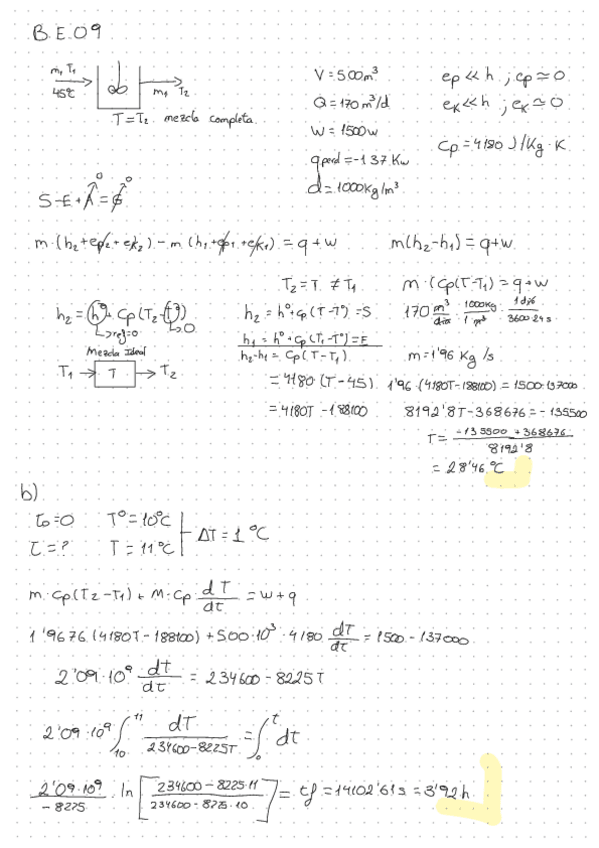 B.E.09
m₁ T₁
45ºC
m₁ T₂
T=T₂ mezcla completa.
V = 500m³
Q = 170 m³/d
W = 1500w
q perd = -137 Kw
d = 1000Kg/m³
ep << h ; ep ≃ 0
ek << h ; ek ≃ 0
Cp = 4180 J/Kg·K
0 0
S-E+A=G
m·(h₂+ep₂+ek₂) - m (h₁+ep₁+ek₁) = q+w
m(h₂-h₁) = q+w
T₂ = T ≠ T₁
m·(Cp(T-T₁) = q+w
h₂ = h° + Cp(T₂-T°)
↳ref=0 ↳0
h₂ = h°+Cp(T-T°) = S
h₁ = h°+Cp(T₁-T°) = E
h₂-h₁ = Cp(T-T₁)
170 m³/dia · 1000Kg/1 m³ · 1 día/3600·24 s
Mezcla Ideal
T₁ → T → T₂
m = 1'96 Kg/s
= 4180·(T-45)
1'96·(4180T-188100) = 1500-137000
= 4180T - 188100
8192'8T - 368676 = -135500
T = (-135500 + 368676)/8192'8
= 28'46 ºC
b)
τ₀=0 T° = 10ºC
τ = ? T = 11ºC
ΔT = 1 ºC
m·Cp(T₂-T₁) + M·Cp· dT/dτ = w+q
1'9676·(4180T-188100) + 500·10³·4180 dT/dτ = 1500 - 137000
2'09·10⁹ dt/dτ = 234600 - 8225T
2'09·10⁹ ∫₁₀¹¹ dT/(234600-8225T) = ∫₀ᵗ dt
2'09·10⁹/-8225 · ln [(234600-8225·11)/(234600-8225·10)] = tf = 14102'61s = 3'92h